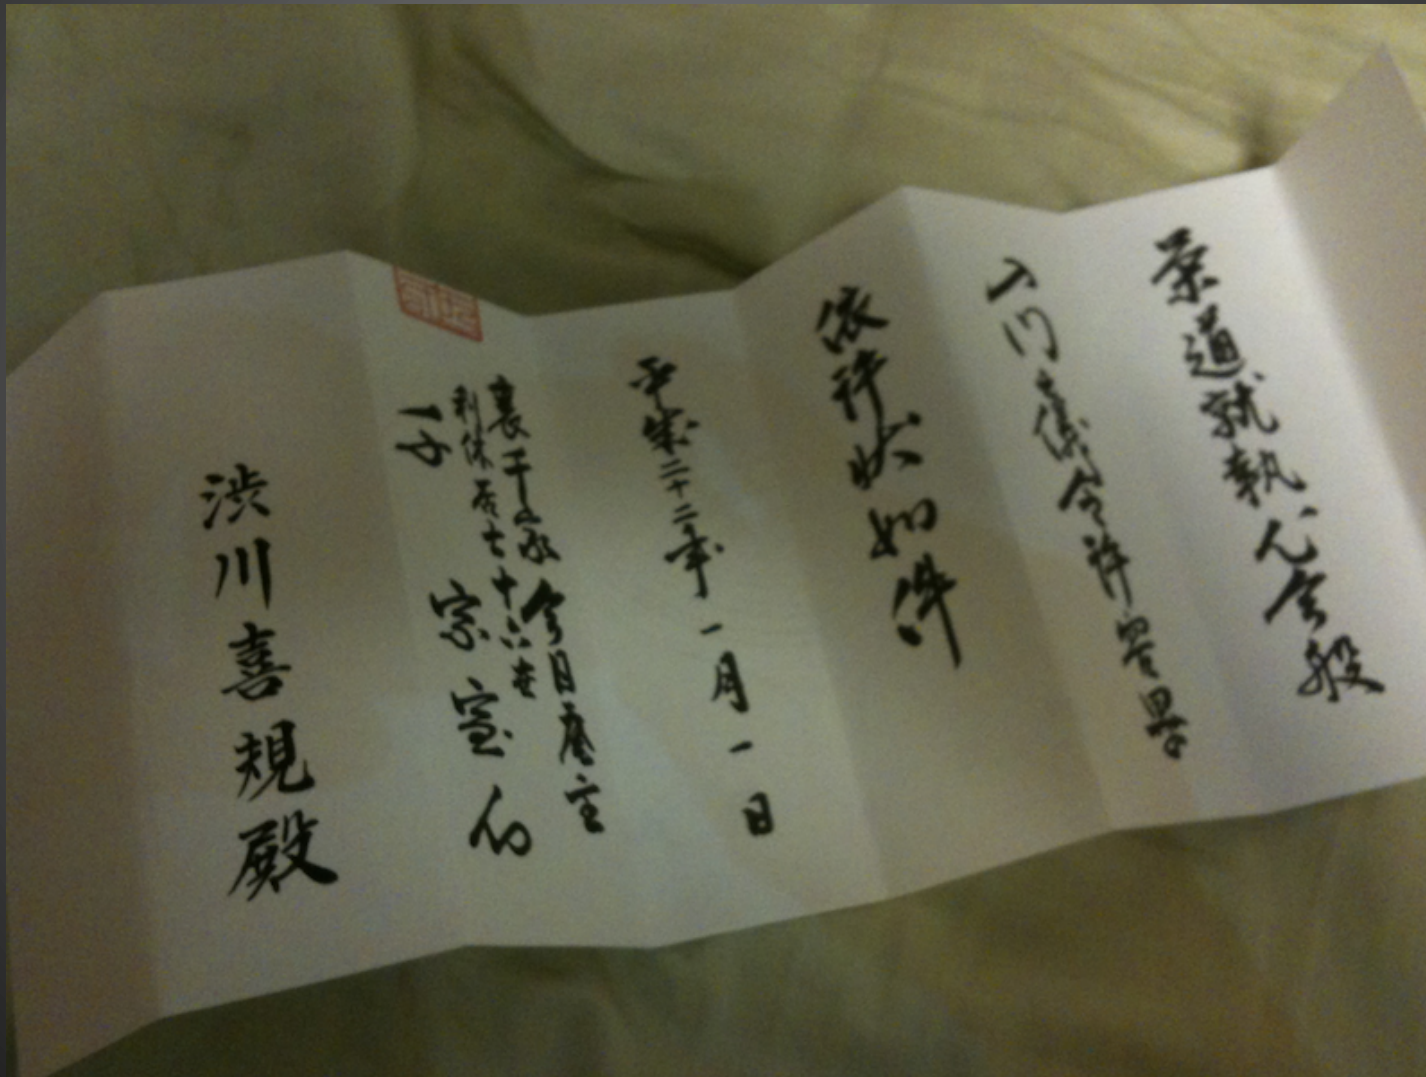 茶道就執心今般
入門之儀令許容畢
依許状如件
平成二十二年一月一日
裏千家今日庵主
利休居士十六世
宗室
渋川喜規殿